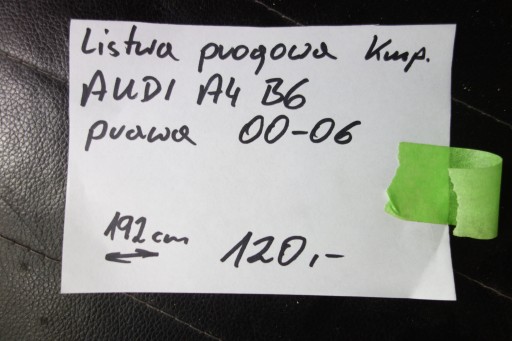 Listwa progowa Kmp.
AUDI A4 B6
prawa 00-06
192cm
120,-